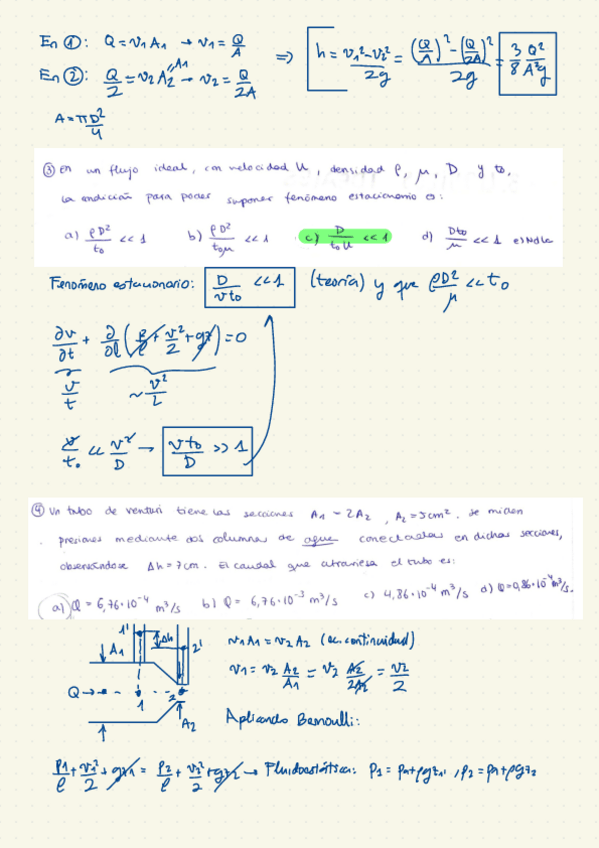 En ①: Q = v₁ A₁ → v₁ = Q/A ⇒ h = (v₁² - v₂²)/2g = ((Q/A)² - (Q/2A)²)/2g = 3/8 Q²/A²g
En ②: Q/2 = v₂ A₂ → v₂ = Q/2A
A₁
A = πD²/4
③ En un flujo ideal, con velocidad U, densidad ρ, μ, D y to,
la condición para poder suponer fenómeno estacionario es:
a) ρD²/to << 1 b) ρD²/toμ << 1 c) D/toU << 1 d) Dto/μ << 1
Fenómeno estacionario: D/vto << 1 (teoría) y que ρD²/μ << to
∂v/∂t + ∂/∂l (p/ρ + v²/2 + gz) = 0
v/t ~ v²/2
v/to << v²/D → vto/D >> 1
④ Un tubo de venturi tiene las secciones A₁ = 2A₂, A₂ = 5cm². Se miden
presiones mediante dos columnas de agua conectadas en dichas secciones,
observándose Δh = 7cm. El caudal que atraviesa el tubo es:
a) Q = 6,76·10⁻⁴ m³/s b) Q = 6,76·10⁻³ m³/s c) 4,86·10⁻⁴ m³/s d) Q = 0,86·10⁻⁴ m³/s.
1' Δh 2'
A₁
Q → 1 2
A₂
v₁A₁ = v₂A₂ (ec. continuidad)
v₁ = v₂ A₂/A₁ = v₂ A₂/2A₂ = v₂/2
Aplicando Bernoulli:
p₁/ρ + v₁²/2 + gz₁ = p₂/ρ + v₂²/2 + gz₂ → Fluidoestática: p₁ = pa + ρgz₁', p₂ = pa + ρgz₂